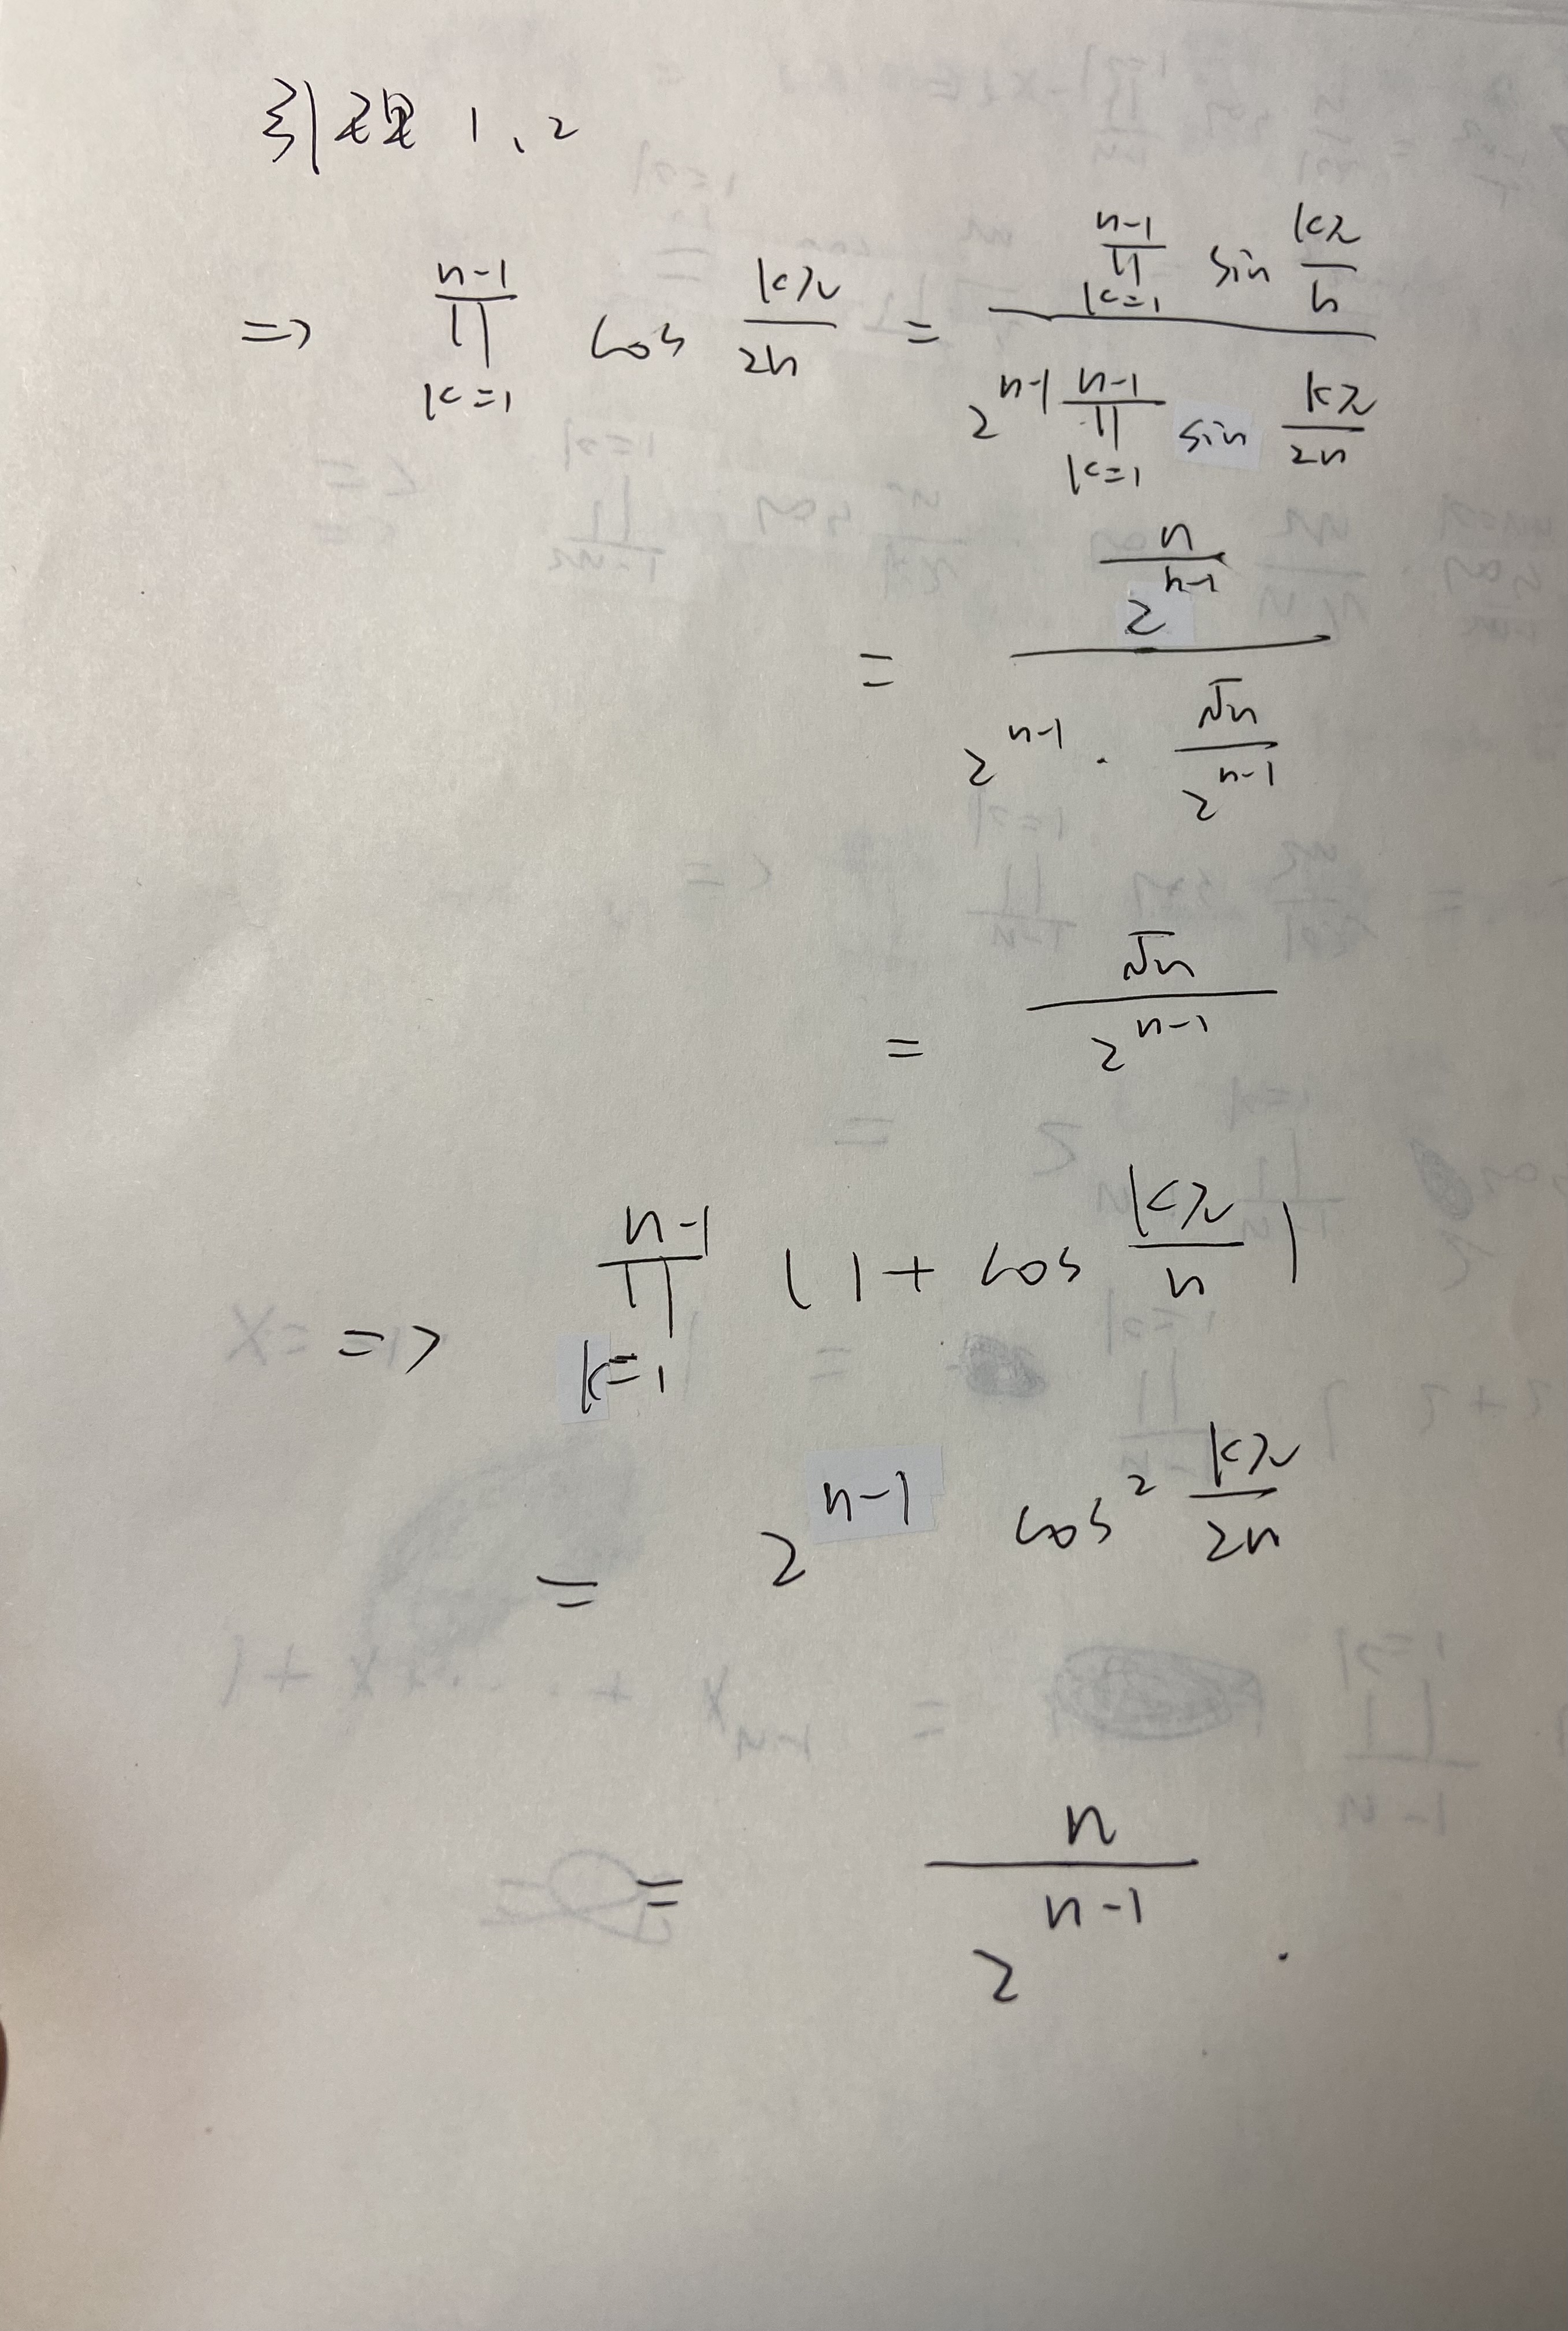 引理 1、2
=> \prod_{k=1}^{n-1} cos \frac{kπ}{2n} = \frac{\prod_{k=1}^{n-1} sin \frac{kπ}{n}}{2^{n-1} \prod_{k=1}^{n-1} sin \frac{kπ}{2n}}
= \frac{\frac{n}{2^{n-1}}}{2^{n-1} · \frac{\sqrt{n}}{2^{n-1}}}
= \frac{\sqrt{n}}{2^{n-1}}
=> \prod_{k=1}^{n-1} (1 + cos \frac{kπ}{n})
= 2^{n-1} cos^2 \frac{kπ}{2n}
= \frac{n}{2^{n-1}} .